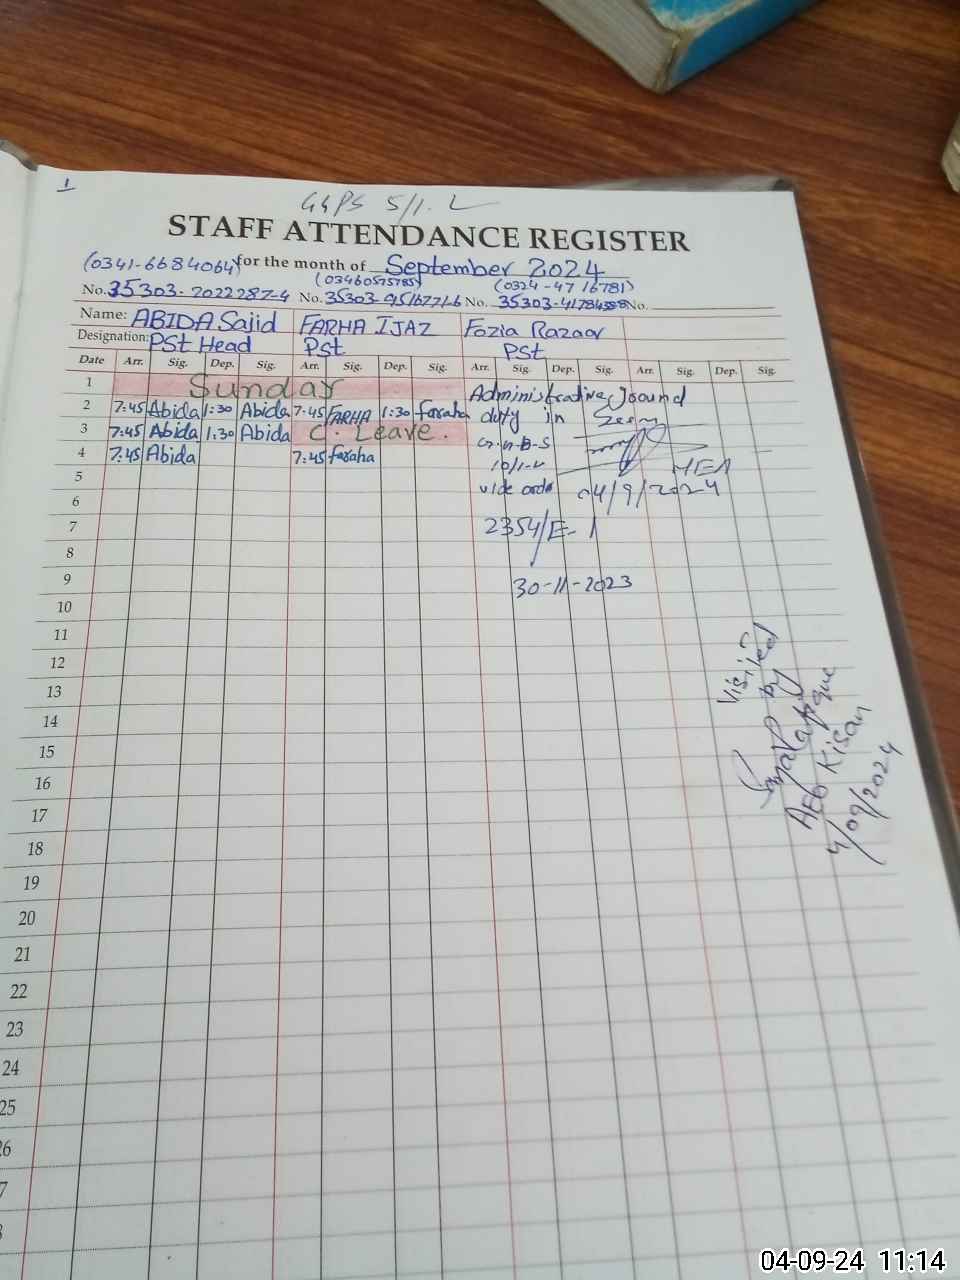 1
GGPS 5/1.L
STAFF ATTENDANCE REGISTER
for the month of September 2024
(0341-6684064) (03460575785) (0324-4716781)
No. 35303-2022287-4 No. 35303-9516771-6 No. 35303-4178438-8 No.
Name: ABIDA Sajid FARHA IJAZ Fozia Razaar
Designation: PSt Head PSt PSt
Date Arr. Sig. Dep. Sig. Arr. Sig. Dep. Sig. Arr. Sig. Dep. Sig. Arr. Sig. Dep. Sig.
1 Sunday Administrative
2 7:45 Abida 1:30 Abida 7:45 FARHA 1:30 faraha duty in
3 7:45 Abida 1:30 Abida C. Leave. G.H.B.S
4 7:45 Abida 7:45 faraha 10/1-L MEA
5 vide order 04/9/2024
6
7 2354/E-1
8
9 30-11-2023
10
11
12
13
14
15
16
17
18
19
20
21
22
23
24
25
26
Visited
by
AEO Kisan
4/09/2024
04-09-24 11:14